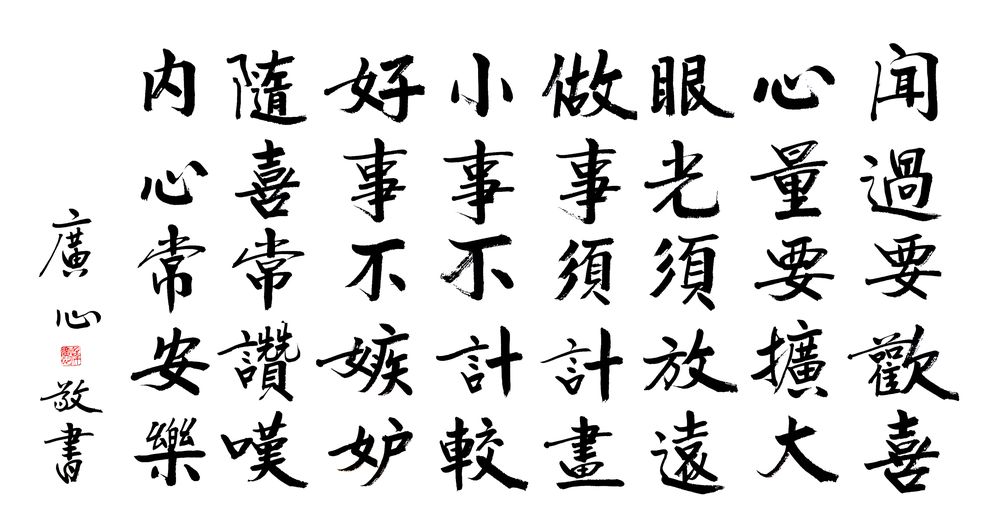 闻過要歡喜
心量要擴大
眼光須放遠
做事須計畫
小事不計較
好事不嫉妒
隨喜常讚嘆
内心常安樂
廣心敬書